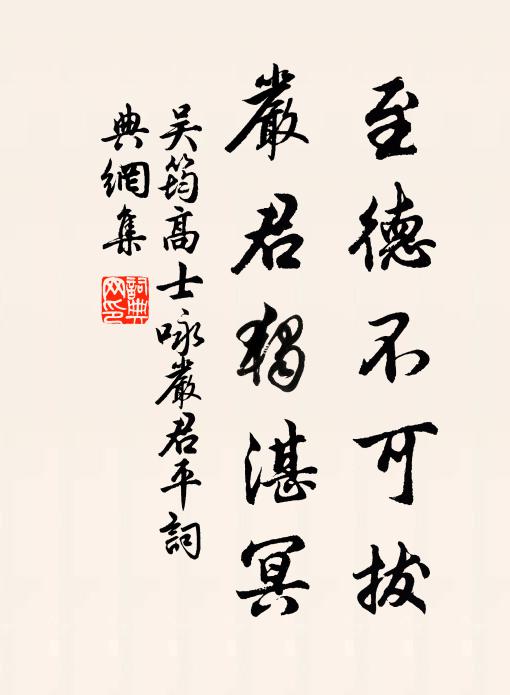 至德不可拔
嚴君獨湛冥
吴筠高士咏嚴君平詞
典網集
詞典網印